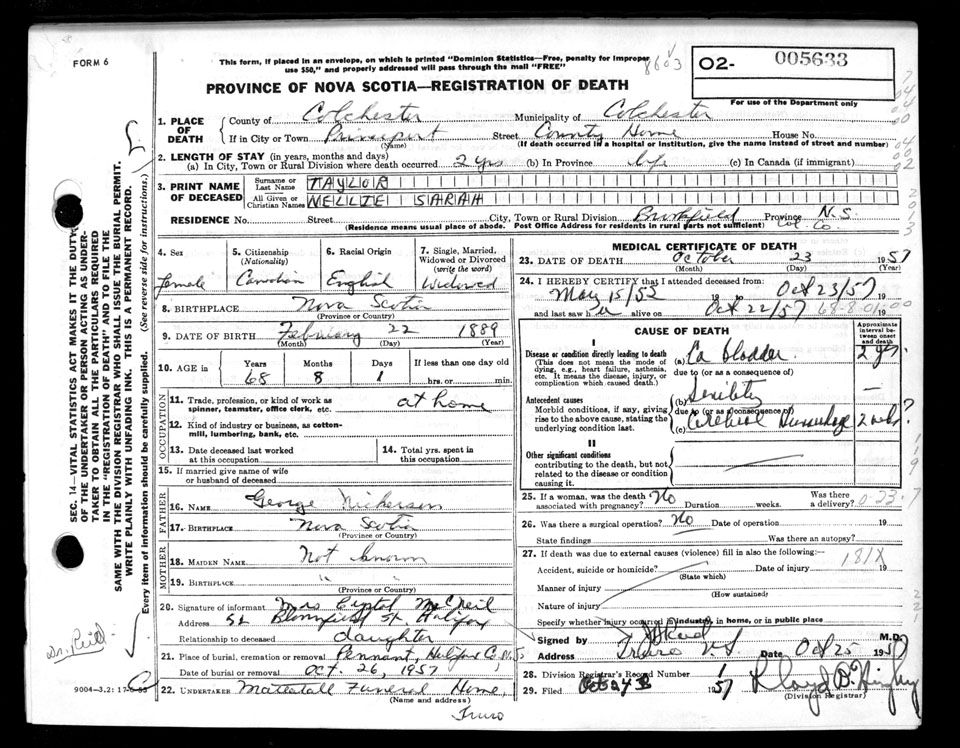 FORM 6
This form, if placed in an envelope, on which is printed "Dominion Statistics—Free, penalty for improper
use $50," and properly addressed will pass through the mail "FREE"
8603
O2- 005633
For use of the Department only
PROVINCE OF NOVA SCOTIA—REGISTRATION OF DEATH
1. PLACE OF DEATH
County of Colchester Municipality of Colchester
If in City or Town Princeport Street County Home House No.
(Name) (If death occurred in a hospital or institution, give the name instead of street and number)
2. LENGTH OF STAY (in years, months and days)
(a) In City, Town or Rural Division where death occurred 2 yrs (b) In Province life (c) In Canada (if immigrant)
3. PRINT NAME OF DECEASED
Surname or Last Name TAYLOR
All Given or Christian Names NELLIE SARAH
RESIDENCE No. Street City, Town or Rural Division Brookfield Province N.S.
(Residence means usual place of abode. Post Office Address for residents in rural parts not sufficient) Col. Co.
4. Sex Female
5. Citizenship (Nationality) Canadian
6. Racial Origin English
7. Single, Married, Widowed or Divorced (write the word) Widowed
8. BIRTHPLACE Nova Scotia
(Province or Country)
9. DATE OF BIRTH February 22 1889
(Month) (Day) (Year)
10. AGE in Years 68 Months 8 Days 1 If less than one day old
hrs. or min.
OCCUPATION
11. Trade, profession, or kind of work as
spinner, teamster, office clerk, etc. at home
12. Kind of industry or business, as cotton-
mill, lumbering, bank, etc.
13. Date deceased last worked
at this occupation
14. Total yrs. spent in
this occupation
15. If married give name of wife
or husband of deceased
FATHER
16. NAME George Nickerson
17. BIRTHPLACE Nova Scotia
(Province or Country)
MOTHER
18. MAIDEN NAME Not known
19. BIRTHPLACE " "
(Province or Country)
20. Signature of informant Mrs Crystal McNeil
Address 52 Bloomfield St. Halifax
Relationship to deceased daughter
21. Place of burial, cremation or removal Pennant, Halifax Co. N.S
Date of burial or removal Oct. 26, 1957
22. UNDERTAKER Mattatall Funeral Home,
(Name and address)
Truro
MEDICAL CERTIFICATE OF DEATH
23. DATE OF DEATH October 23 1957
(Month) (Day) (Year)
24. I HEREBY CERTIFY that I attended deceased from:
May 15/52 19 to Oct 23/57
and last saw her alive on Oct 22/57 19
68-8-01
CAUSE OF DEATH
Approximate interval between onset and death
I
Disease or condition directly leading to death
(This does not mean the mode of
dying, e.g., heart failure, asthenia,
etc. It means the disease, injury, or
complication which caused death.)
(a) Ca bladder 2 yrs.
due to (or as a consequence of)
Antecedent causes
Morbid conditions, if any, giving
rise to the above cause, stating the
underlying condition last.
(b) Senility —
due to (or as a consequence of)
(c) Cerebral Hemorrhage 2 weeks?
II
Other significant conditions
contributing to the death, but not
related to the disease or condition
causing it.
25. If a woman, was the death No Was there
associated with pregnancy? Duration weeks. a delivery?
26. Was there a surgical operation? No Date of operation 19
State findings Was there an autopsy?
27. If death was due to external causes (violence) fill in also the following:—
181X
Accident, suicide or homicide? Date of injury 19
(State which)
Manner of injury
(How sustained)
Nature of injury
Specify whether injury occurred in industry, in home, or in public place
Signed by M.D.
Address Truro N S Date Oct 25 1957
28. Division Registrar's Record Number 1
29. Filed 1957
(Division Registrar)
SEC. 14—VITAL STATISTICS ACT MAKES IT THE DUTY
OF THE UNDERTAKER OR PERSON ACTING AS UNDER-
TAKER TO OBTAIN ALL THE PARTICULARS REQUIRED
IN THE "REGISTRATION OF DEATH" AND TO FILE THE
SAME WITH THE DIVISION REGISTRAR WHO SHALL ISSUE THE BURIAL PERMIT.
WRITE PLAINLY WITH UNFADING INK. THIS IS A PERMANENT RECORD.
Every item of information should be carefully supplied. (See reverse side for instructions.)
Dr. Reid